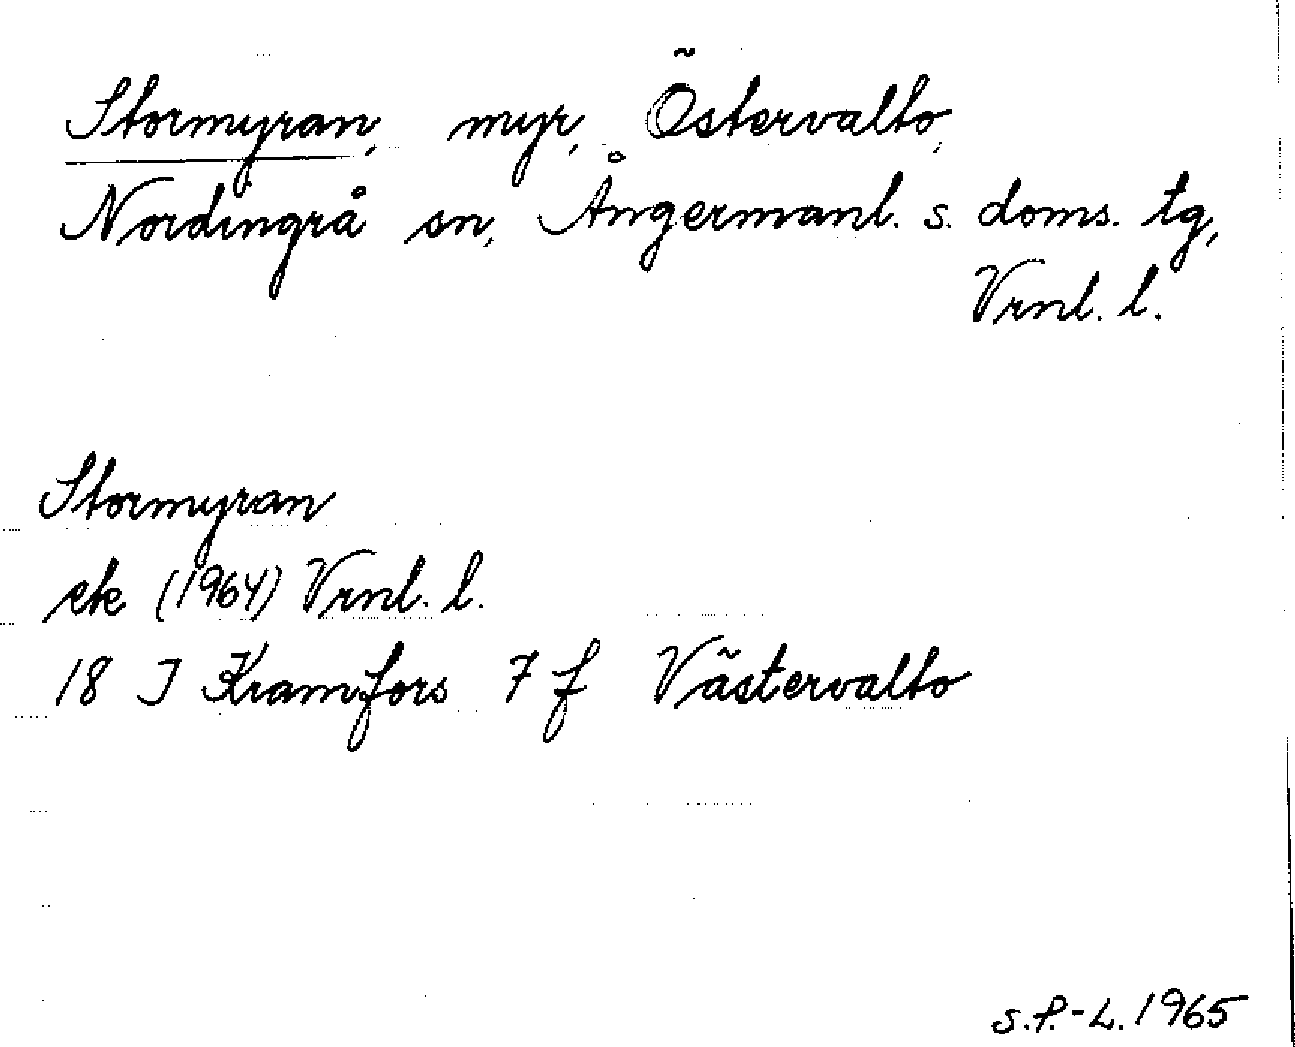 Stormyran, myr, Östervalto,
Nordingrå sn, Ångermanl. s. doms. tg,
Vrnl. l.
Stormyran
ek (1964) Vrnl. l.
18 I Kramfors 7 f Västervalto
S.P.-L. 1965